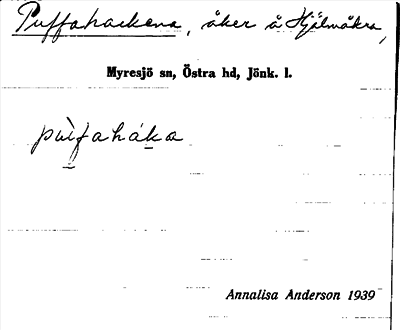 Puffahackena, åker å Hjälmåkra,
Myresjö sn, Östra hd, Jönk. l.
pùfaháka
Annalisa Anderson 1939